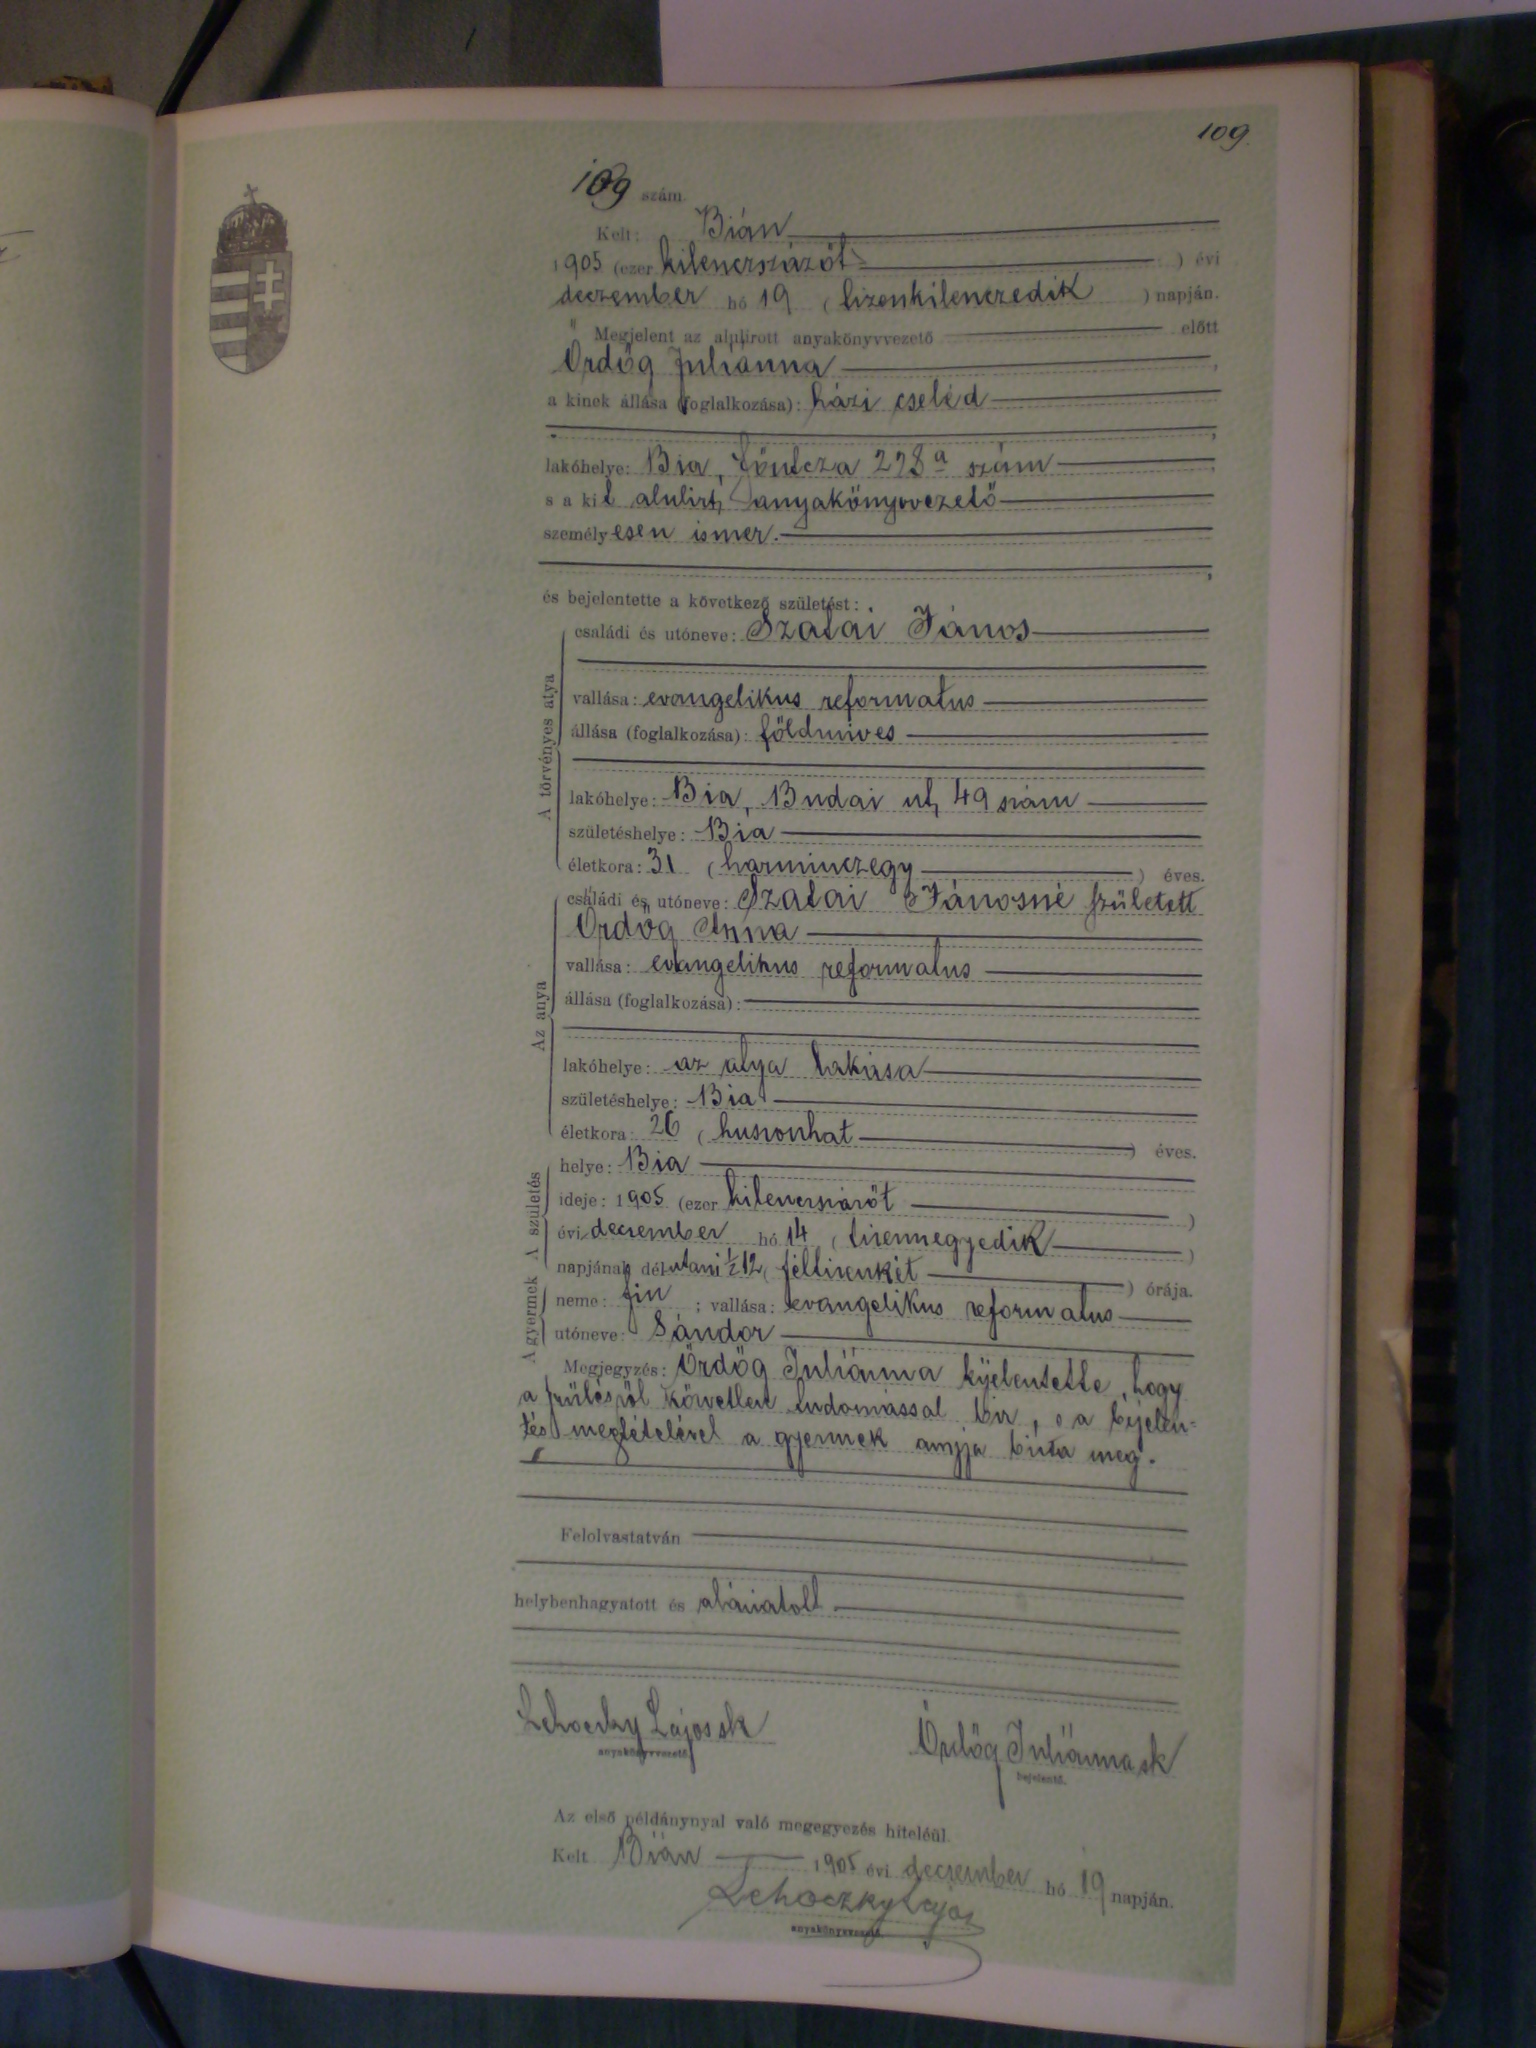 109.
109 szám.
Kelt: Bián
1905 (ezer kilenczszázöt) évi
deczember hó 19 (tizenkilenczedik) napján.
Megjelent az alulirott anyakönyvvezető előtt
Ördög Juliánna,
a kinek állása (foglalkozása): házi cseléd
,
lakóhelye: Bia, főutcza 278a szám,
s a kit alulirt anyakönyvvezető
személyesen ismer.
,
és bejelentette a következő születést:
A törvényes atya
családi és utóneve: Szatai János
vallása: evangelikus reformatus
állása (foglalkozása): földmives
lakóhelye: Bia, Budai ut, 49 szám
születéshelye: Bia
életkora: 31 (harminczegy) éves.
Az anya
családi és utóneve: Szatai Jánosné született
Ördög Anna
vallása: evangelikus reformatus
állása (foglalkozása):
lakóhelye: az atya lakása
születéshelye: Bia
életkora 26 (huszonhat) éves.
A születés
helye: Bia
ideje: 1905 (ezer kilenczszázöt)
évi deczember hó 14 (tizennegyedik)
napjának délutani ½12 (féltizenkét) órája.
A gyermek
neme: fiu; vallása: evangelikus reformatus
utóneve: Sándor
Megjegyzés: Ördög Juliánna kijelentette, hogy
a szülésről közvetlen tudomással bir, s a bejelen-
tés megtételével a gyermek anyja bizta meg.
Felolvastatván
helybenhagyatott és aláiratott
Lehoczky Lajos sk
anyakönyvvezető.
Ördög Juliánna sk
bejelentő.
Az első példánynyal való megegyezés hiteléül.
Kelt Bián 1905 évi deczember hó 19 napján.
Lehoczky Lajos
anyakönyvvezető.